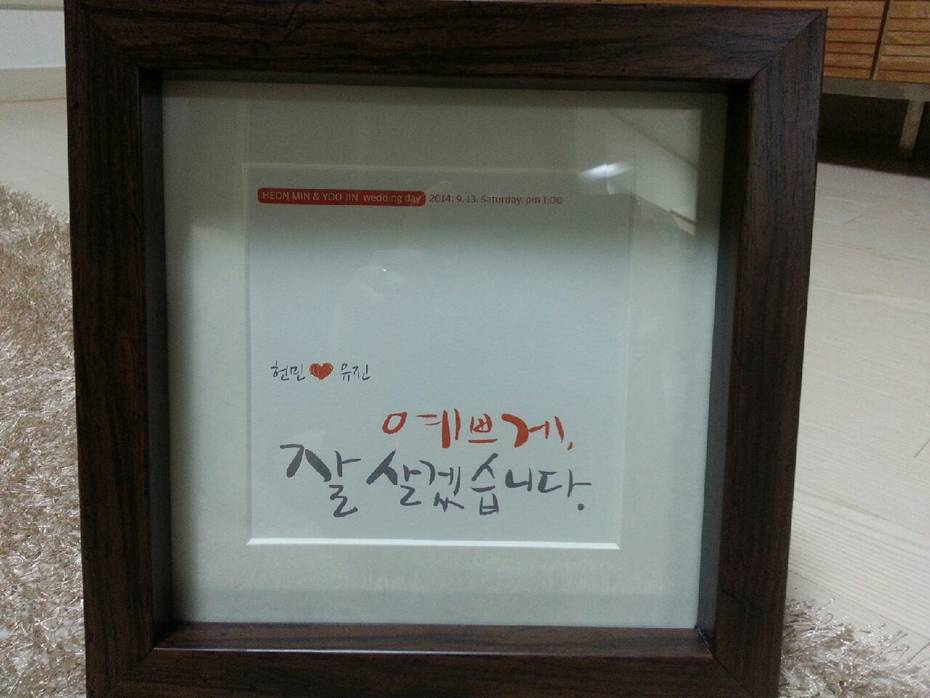 HEON MIN & YOO JIN wedding day 2014. 9. 13. Saturday. pm 1:00
현민 ♥ 유진
예쁘게,
잘 살겠습니다.